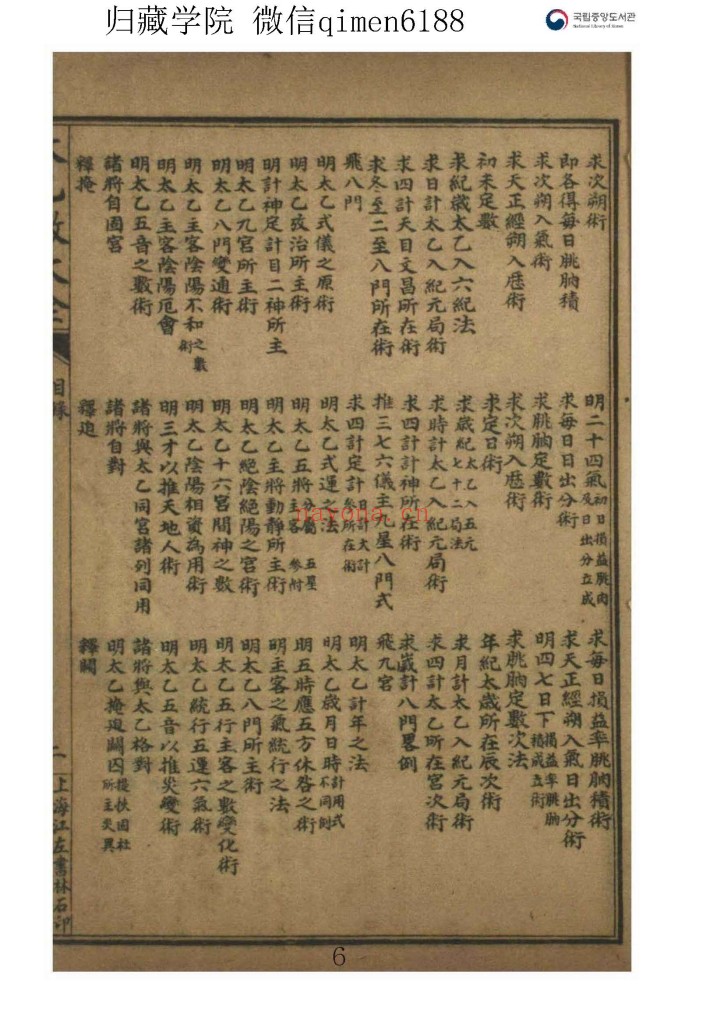 归藏学院 微信qimen6188
국립중앙도서관
National Library of Korea
求次朔術
即各得每日朓朒積
求次朔入氣術
求天正經朔入厯術
初末定數
求紀歲太乙入六紀法
求日計太乙入紀元局術
求四計天目文昌所在術
求冬至二至八門所在術
飛八門
明太乙式儀之原術
明太乙攷治所主術
明計神定計目二神所主
明太乙九宮所主術
明太乙八門變通術
明太乙主客陰陽不和之數術
明太乙主客陰陽厄會
明太乙五音之數術
諸將自囚宮
釋掩
明二十四氣初日損益朓朒及日出分立成
求每日日出分術
求朓朒定數術
求次朔入厯術
求定日術
求歲紀太乙入五元七十二局法
求時計太乙入紀元局術
求四計計神所在術
推三七六儀主九星八門式
求四計定計日計大計參所在術
明太乙式運之法
明太乙五將主客參附五星
明太乙主將動靜所主術
明太乙絕陰絕陽之宮術
明太乙十六宮間神之數
明太乙陰陽相資為用術
明三才以推天地人術
諸將與太乙同宮諸列同用
諸將自對
釋迫
求每日損益率朓朒積術
求天正經朔入氣日出分術
明四七日下損益率朓朒積成立術
求朓朒定數次法
年紀太歲所在辰次術
求月計太乙入紀元局術
求四計太乙所在宮次術
求歲計八門畧例
飛九宮
明太乙計年之法
明太乙歲月日時計用式不同例
明五時應五方休咎之術
明主客之氣統行之法
明太乙八門所主術
明太乙五行主客之數變化術
明太乙統行五運六氣術
明太乙五音以推災變術
諸將與太乙格對
明太乙掩迫關囚提挾囚杜所主災異
釋關
目錄
二
上海江左書林石印
naroha.cn
6